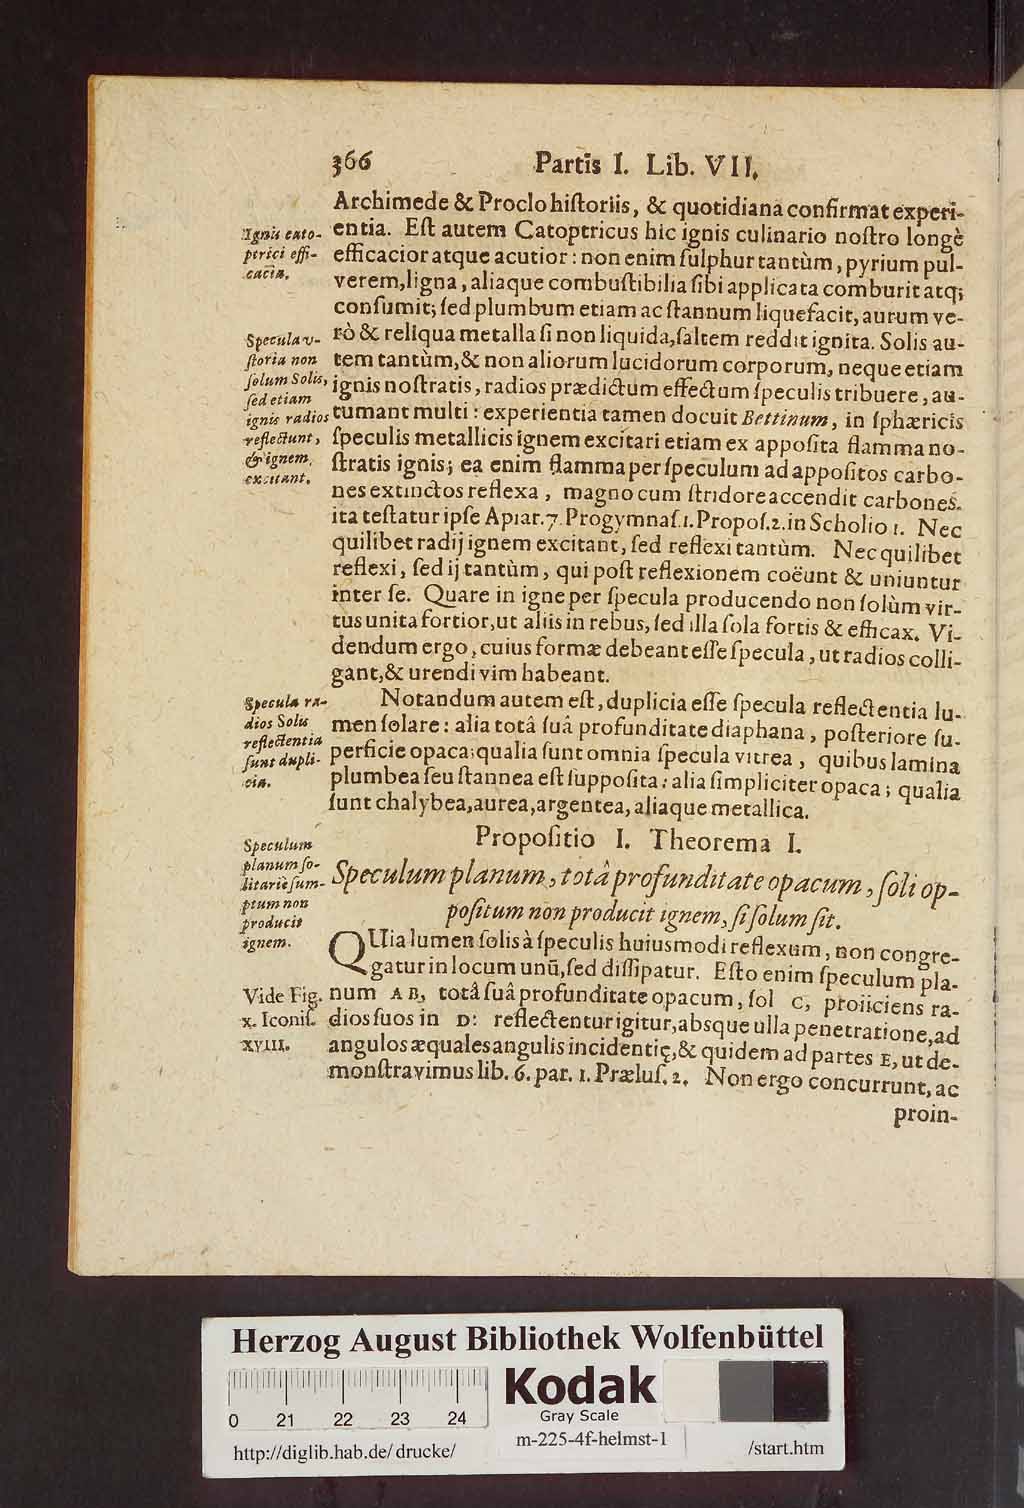 366 Partis I. Lib. VII.
Archimede & Proclo hiſtoriis, & quotidiana confirmat experi-
entia. Eſt autem Catoptricus hic ignis culinario noſtro longè
efficacior atque acutior: non enim ſulphur tantùm, pyrium pul-
verem, ligna, aliaque combuſtibilia ſibi applicata comburit atq;
conſumit; ſed plumbum etiam ac ſtannum liquefacit, aurum ve-
rò & reliqua metalla ſi non liquida, ſaltem reddit ignita. Solis au-
tem tantùm, & non aliorum lucidorum corporum, neque etiam
ignis noſtratis, radios prædictum effectum ſpeculis tribuere, au-
tumant multi: experientia tamen docuit Bettinum, in ſphæricis
ſpeculis metallicis ignem excitari etiam ex appoſita flamma no-
ſtratis ignis; ea enim flamma per ſpeculum ad appoſitos carbo-
nes extinctos reflexa, magno cum ſtridore accendit carbones.
ita teſtatur ipſe Apiar. 7. Progymnaſ. 1. Propoſ. 2. in Scholio 1. Nec
quilibet radij ignem excitant, ſed reflexi tantùm. Nec quilibet
reflexi, ſed ij tantùm, qui poſt reflexionem coëunt & uniuntur
inter ſe. Quare in igne per ſpecula producendo non ſolùm vir-
tus unita fortior, ut aliis in rebus, ſed illa ſola fortis & efficax. Vi-
dendum ergo, cuius formæ debeant eſſe ſpecula, ut radios colli-
gant, & urendi vim habeant.
Notandum autem eſt, duplicia eſſe ſpecula reflectentia lu-
men ſolare: alia totâ ſuâ profunditate diaphana, poſteriore ſu-
perficie opaca; qualia ſunt omnia ſpecula vitrea, quibus lamina
plumbea ſeu ſtannea eſt ſuppoſita: alia ſimpliciter opaca; qualia
ſunt chalybea, aurea, argentea, aliaque metallica.
Propoſitio I. Theorema I.
Speculum planum, totâ profunditate opacum, ſoli op-
poſitum non producit ignem, ſi ſolum ſit.
QUia lumen ſolis à ſpeculis huiusmodi reflexum, non congre-
gatur in locum unũ, ſed diſſipatur. Eſto enim ſpeculum pla-
num AB, totâ ſuâ profunditate opacum, ſol C, proiiciens ra-
dios ſuos in D: reflectentur igitur, absque ulla penetratione, ad
angulos æquales angulis incidentię, & quidem ad partes E, ut de-
monſtravimus lib. 6. par. 1. Præluſ. 2. Non ergo concurrunt, ac
proin-
Ignis cato-
ptrici effi-
cacia.
Specula u-
ſtoria non
ſolum Solis,
ſed etiam
ignis radios
reflectunt,
& ignem
excitant.
Specula ra-
dios Solis
reflectentia
ſunt dupli-
cia.
Speculum
planum ſo-
litariè ſum-
ptum non
producit
ignem.
Vide Fig.
x. Iconiſ.
XVIII.
Herzog August Bibliothek Wolfenbüttel
0 21 22 23 24
Kodak
Gray Scale
http://diglib.hab.de/drucke/
m-225-4f-helmst-1
/start.htm